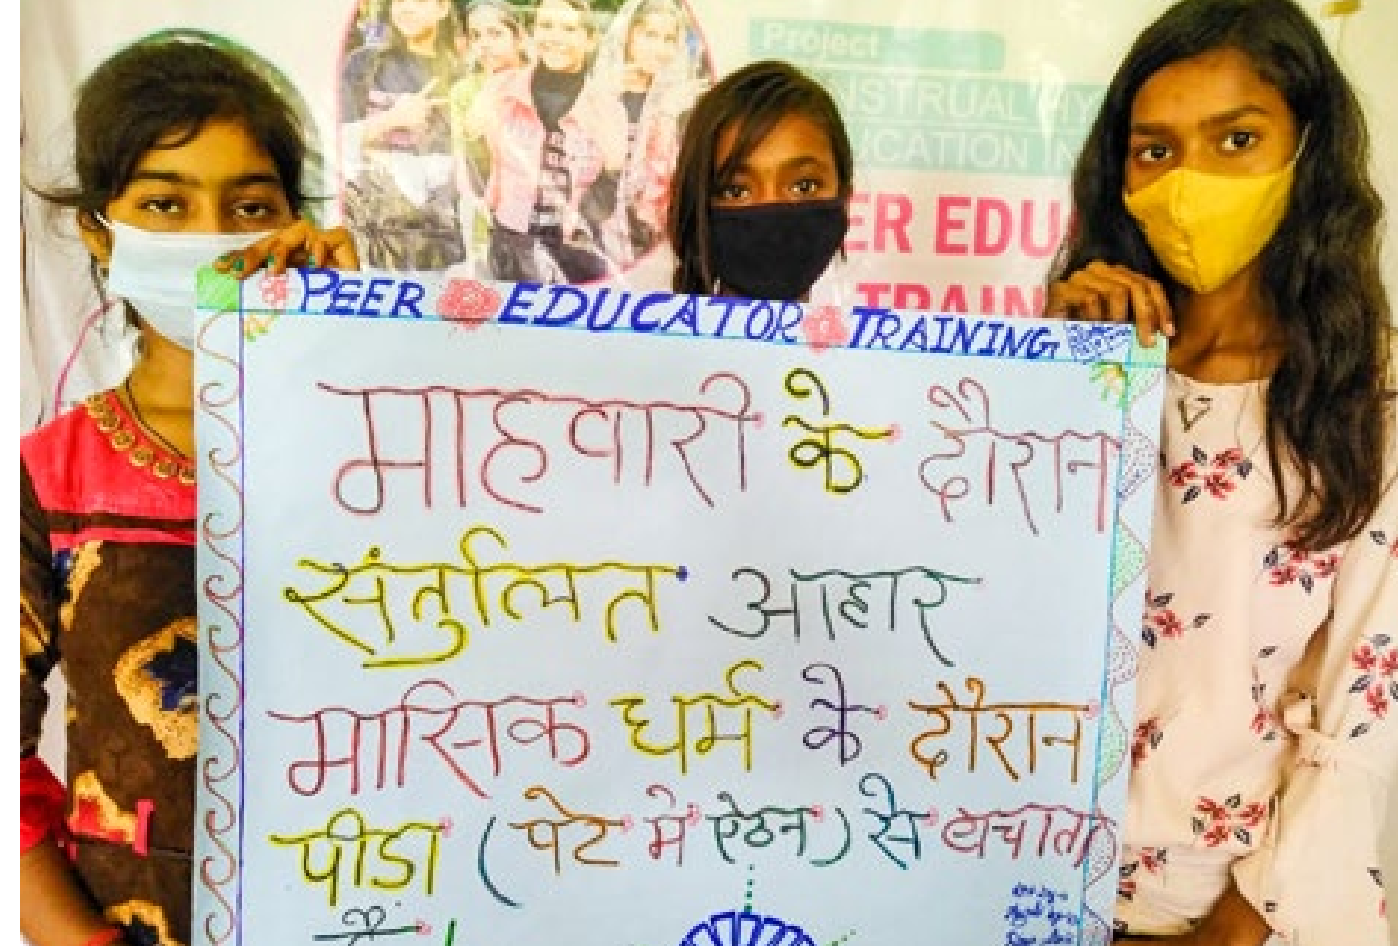 Project
NSTRUAL HY
CATION IN
ER EDU
TRAIN
PEER EDUCATOR TRAINING
माहवारी के दौरान
संतुलित आहार
मासिक धर्म के दौरान
पीडा (पेट में ऐठन) से बचाता
है